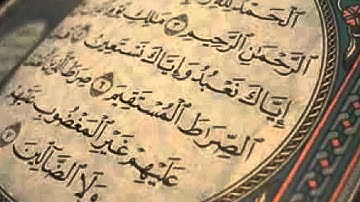 الْحَمْدُ لِلَّهِ
الرَّحْمَٰنِ الرَّحِيمِ ۝ مَٰلِكِ يَوْمِ
إِيَّاكَ نَعْبُدُ وَإِيَّاكَ نَسْتَعِينُ
الصِّرَاطَ الْمُسْتَقِيمَ ۝ صِرَاطَ الَّذِينَ
عَلَيْهِمْ غَيْرِ الْمَغْضُوبِ عَلَيْهِمْ
وَلَا الضَّالِّينَ